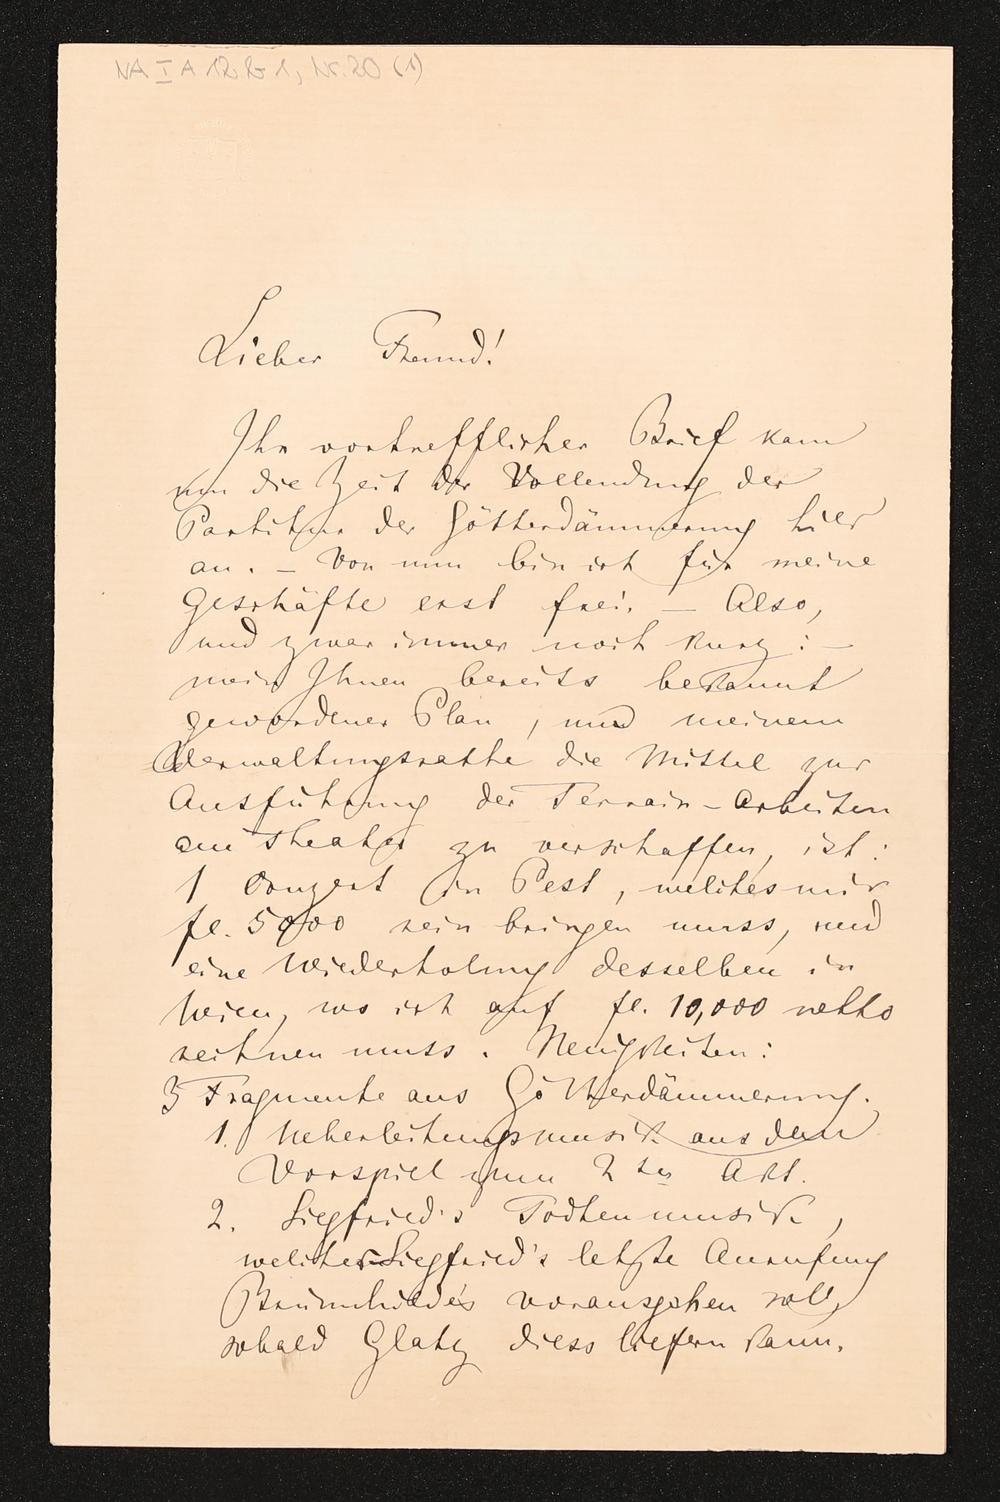 NA I A 12 B 1, Nr. 20 (1)
Lieber Freund!
Ihr vortrefflicher Brief kam
um die Zeit der Vollendung der
Partitur der Götterdämmerung hier
an. – Von nun bin ich für meine
Geschäfte erst frei. – Also,
und zwar immer noch kurz: –
mein Ihnen bereits bekannt
gewordener Plan, um meinem
Verwaltungsrathe die Mittel zur
Ausführung der Terrain-Arbeiten
am Theater zu verschaffen, ist:
1 Conzert in Pest, welches mir
fl. 5000 rein bringen muss, und
eine Wiederholung desselben in
Wien, wo ich auf fl. 10,000 netto
rechnen muss. Neuigkeiten:
3 Fragmente aus Götterdämmerung.
1. Ueberleitungsmusik aus dem
Vorspiel zum 2ten Akt.
2. Siegfried's Todtenmusik,
welcher Siegfried's letzte Anrufung
Brünnhilde's vorausgehen soll,
sobald Glatz diess liefern kann.